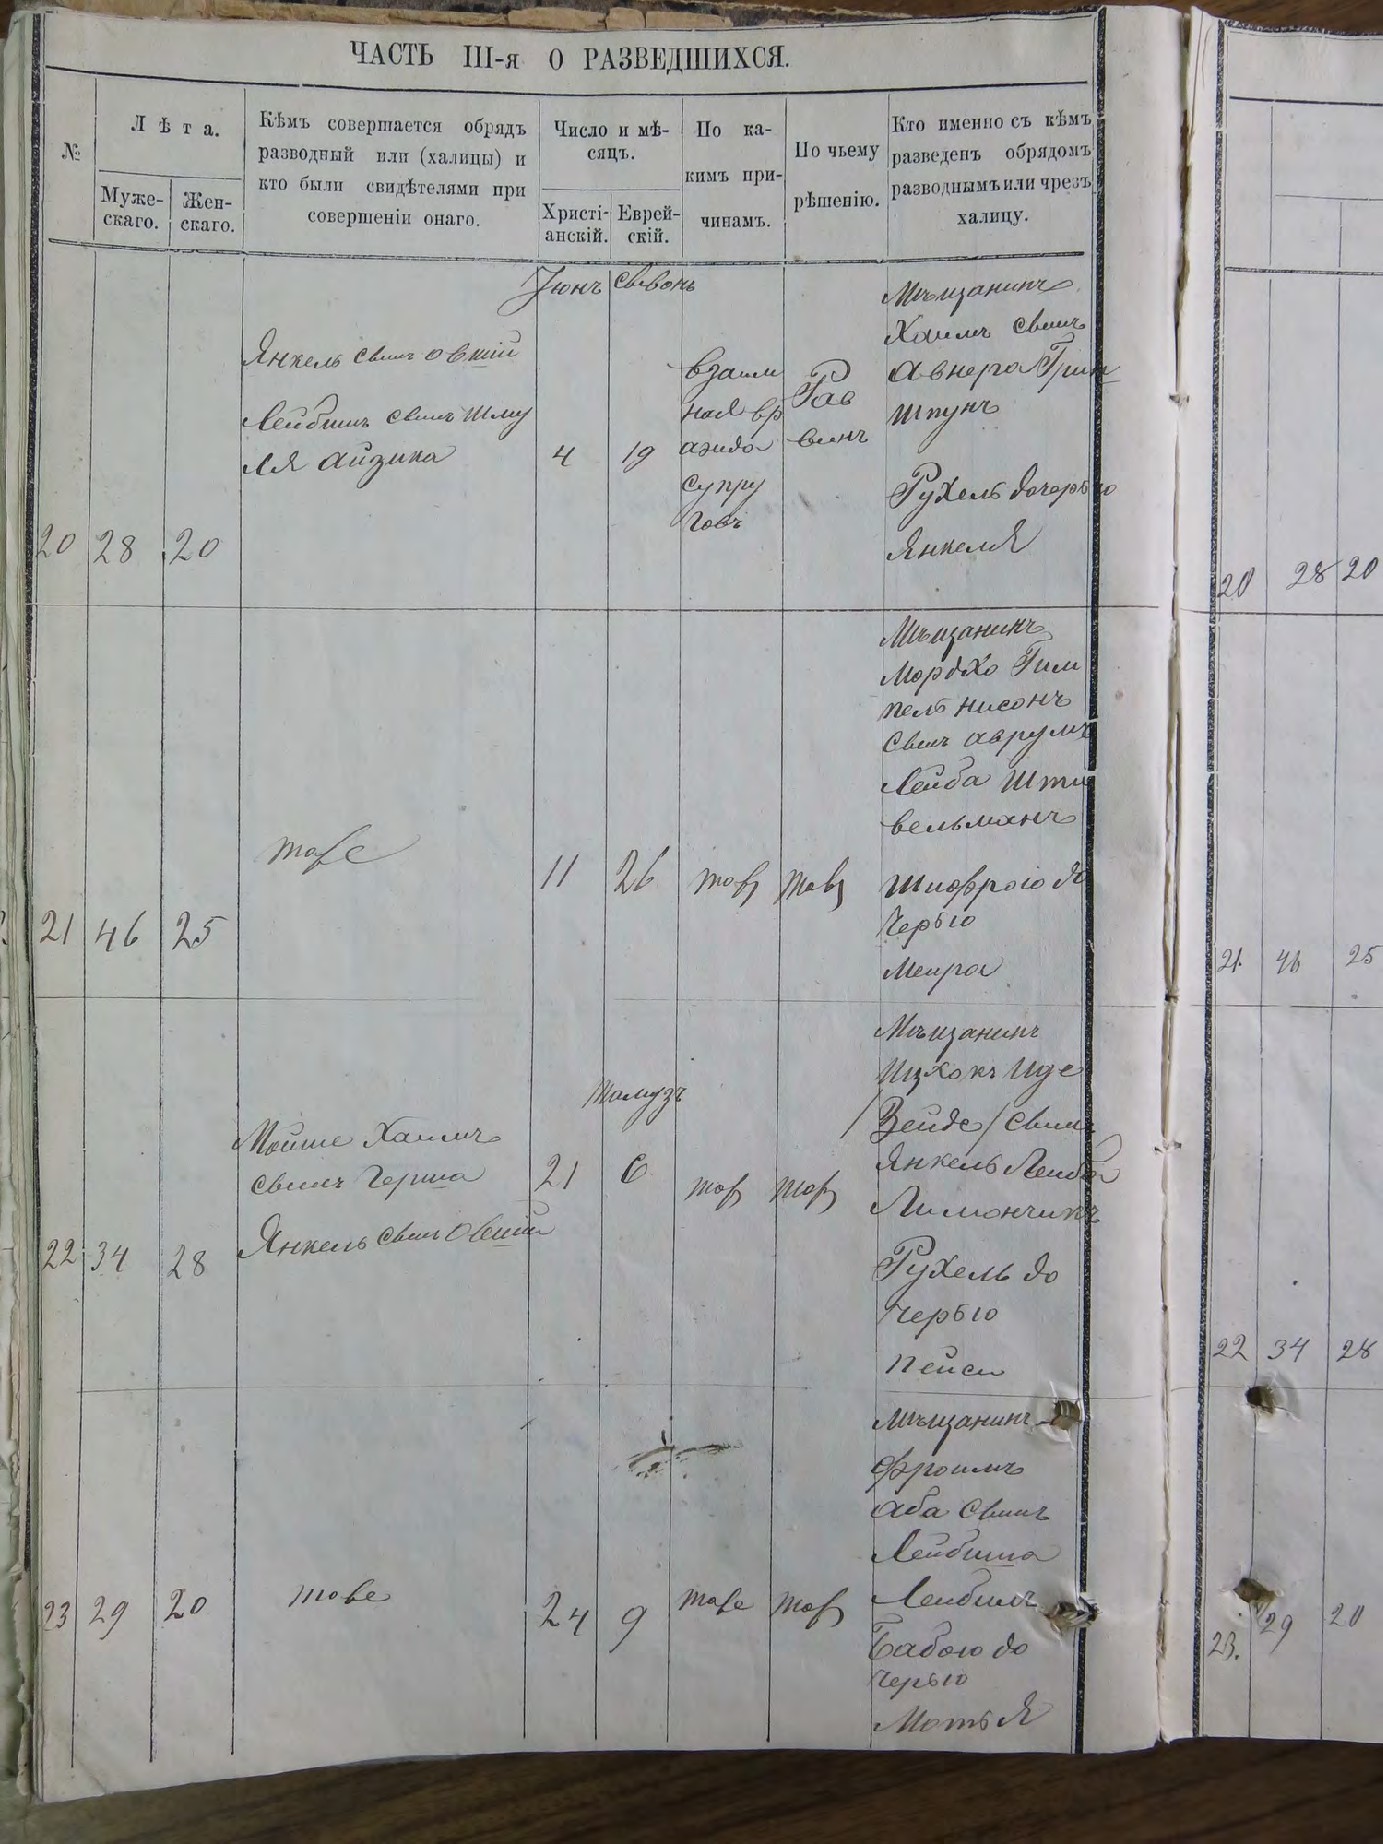 ЧАСТЬ III-я О РАЗВЕДШИХСЯ.
№
Лѣта.
Муже-
скаго.
Жен-
скаго.
Кѣмъ совершается обрядъ
разводный или (халицы) и
кто были свидѣтелями при
совершеніи онаго.
Число и мѣ-
сяцъ.
Христі-
анскій.
Еврей-
скій.
По ка-
кимъ при-
чинамъ.
По чьему
рѣшенію.
Кто именно съ кѣмъ
разведенъ обрядомъ
разводнымъ или чрезъ
халицу.
Іюнь Сивонъ
20 28 20
Янкель сынъ Овшіи
Лейбишъ сынъ Шму
ля Айзика
4 19
взаим
ная вр
ажда
супру
говъ
Рав
винъ
Мѣщанинъ
Хаимъ сынъ
Авнера Грин
шпунъ
Рухель дочерью
Янкеля
21 46 25
тоже
11 26
тоже тоже
Мѣщанинъ
Мордхо Гим
пель Нисонъ
сынъ Аврумъ
Лейба Шти
вельманъ
Шифрою до
черью
Меира
22 34 28
Мойше Хаимъ
сынъ Герша
Янкель сынъ Овшіи
Тамузъ
21 6
тоже тоже
Мѣщанинъ
Ицхокъ Иде
/Зейде/ сынъ
Янкель Лейба
Лимончикъ
Рухель до
черью
Пейси
23 29 20
тоже
24 9
тоже тоже
Мѣщанинъ
Фроимъ
Аба сынъ
Лейбиша
Лейбишъ
Бабою до
черью
Мотья
20 28 20
21. 46 25
22 34 28
23. 29 20